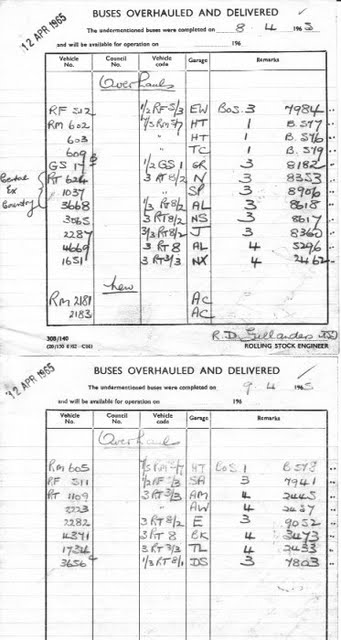 12 APR 1965
BUSES OVERHAULED AND DELIVERED
The undermentioned buses were completed on 8.4 1965
and will be available for operation on 196
Vehicle No. Council No. Vehicle code Garage Remarks
Overhauls
RF 512 1/2 RF 5/3 EW BOS. 3 7984
RM 602 HT 1 B.577
603 " HT 1 B.576
609 " TC 1 B.579
GS 17 1/2 GS 1 GR 3 8182
RT 624 3 RT 8/2 N 3 8353
1037 " SP 3 8906
3668 1/3 RT 8/2 AL 3 8618
3065 3 RT 8/2 NS 3 8617
2287 3/3 RT 8/2 J 3 8360
4669 3 RT 8 AL 4 5296
1651 3 RT 3/3 NX 4 2462
Ex
Country
New
RM 2181 AC
2183 AC
308/140
R.D. Gillanders
ROLLING STOCK ENGINEER
12 APR 1965
BUSES OVERHAULED AND DELIVERED
The undermentioned buses were completed on 9.4 1965
and will be available for operation on 196
Vehicle No. Council No. Vehicle code Garage Remarks
Overhauls
RM 605 HT BOS. 1 B.578
RF 511 1/2 RF 5/3 SA 3 7941
RT 1109 3 RT 3/3 AM 4 2445
2223 " AW 4 2437
2282 3 RT 8/2 E 3 9052
4371 3 RT 8 BK 4 3473
1734 3 RT 3/3 TL 4 2433
3656 1/3 RT 8/1 DS 3 7803